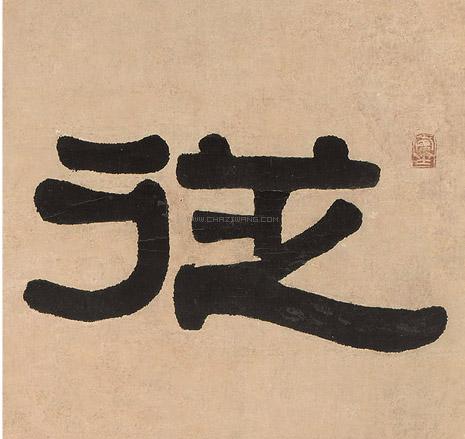 從
WWW.CHAZIWANG.COM